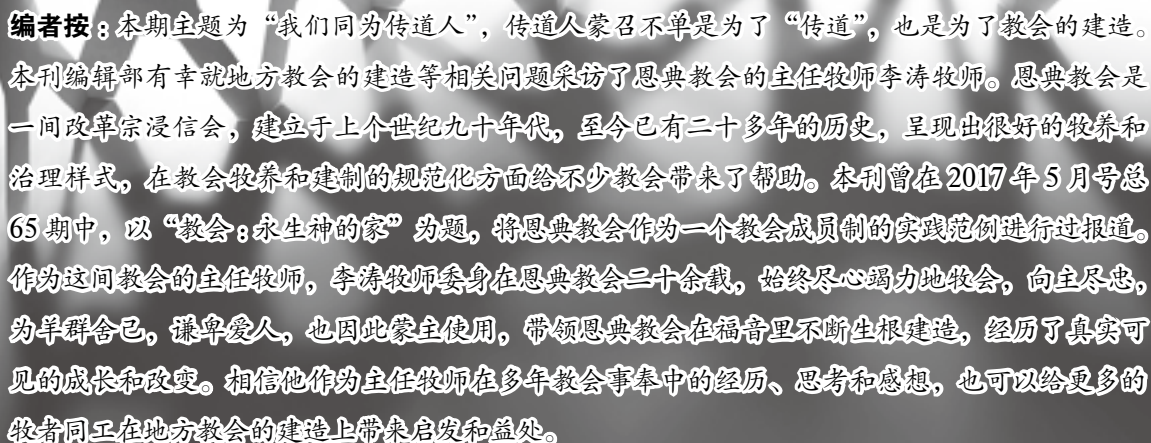 编者按：本期主题为“我们同为传道人”，传道人蒙召不单是为了“传道”，也是为了教会的建造。
本刊编辑部有幸就地方教会的建造等相关问题采访了恩典教会的主任牧师李涛牧师。恩典教会是
一间改革宗浸信会，建立于上个世纪九十年代，至今已有二十多年的历史，呈现出很好的牧养和
治理样式，在教会牧养和建制的规范化方面给不少教会带来了帮助。本刊曾在 2017 年 5 月号总
65 期中，以“教会：永生神的家”为题，将恩典教会作为一个教会成员制的实践范例进行过报道。
作为这间教会的主任牧师，李涛牧师委身在恩典教会二十余载，始终尽心竭力地牧会，向主尽忠，
为羊群舍己，谦卑爱人，也因此蒙主使用，带领恩典教会在福音里不断生根建造，经历了真实可
见的成长和改变。相信他作为主任牧师在多年教会事奉中的经历、思考和感想，也可以给更多的
牧者同工在地方教会的建造上带来启发和益处。